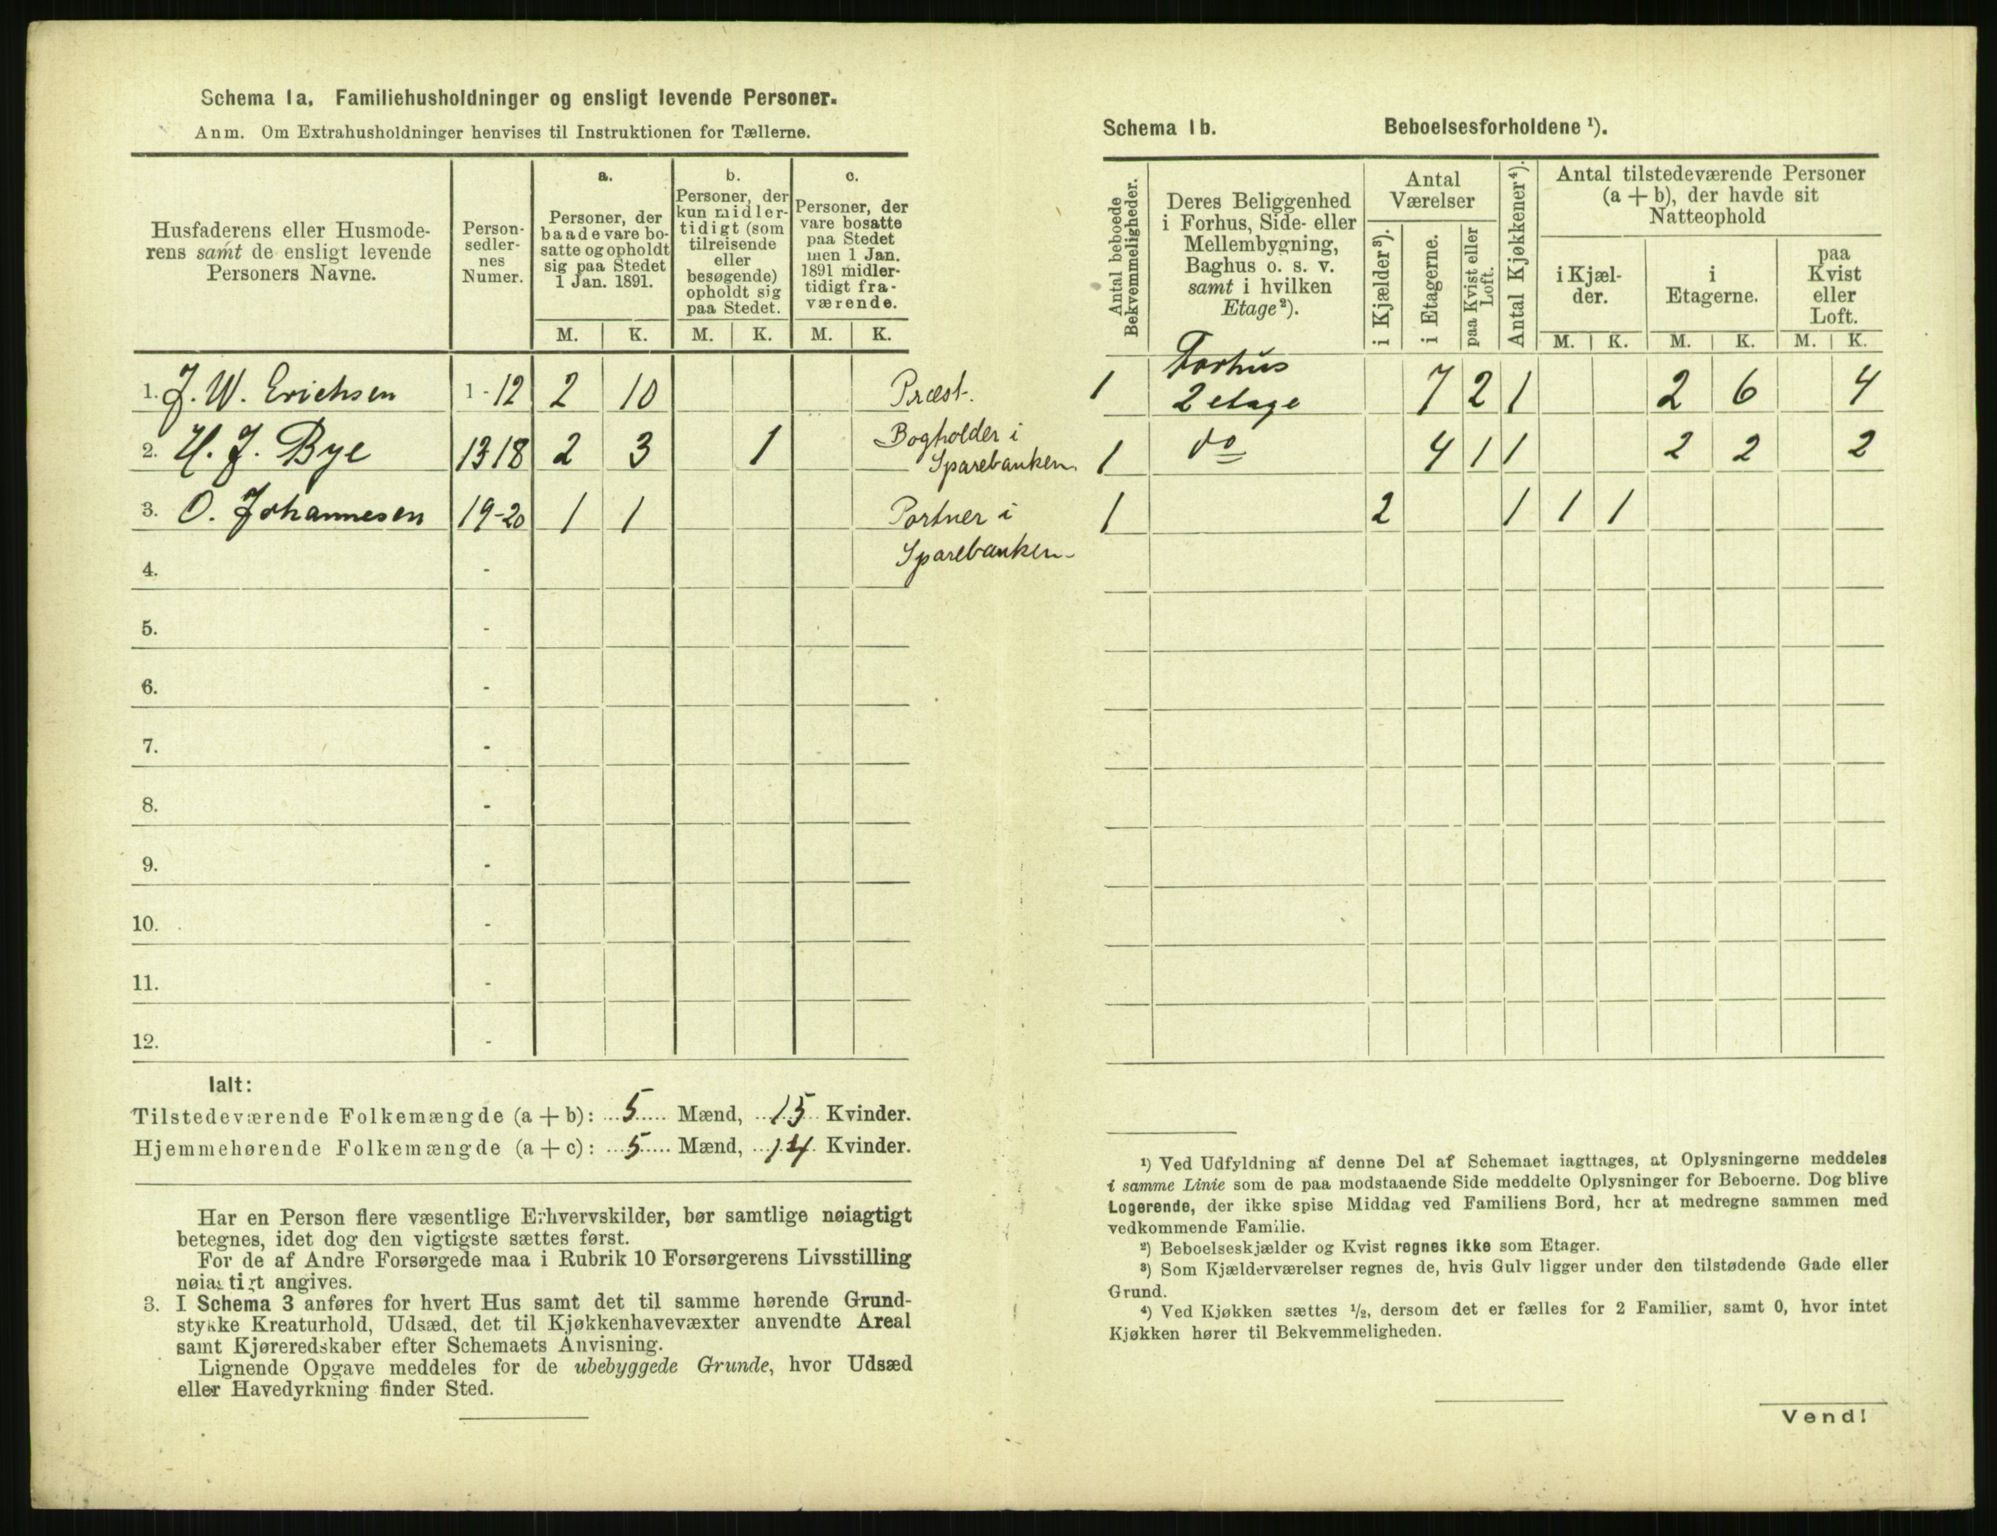 Schema 1a. Familiehusholdninger og ensligt levende Personer.
Anm. Om Extrahusholdninger henvises til Instruktionen for Tællerne.
Husfaderens eller Husmode-
rens samt de ensligt levende
Personers Navne.
Person-
sedler-
nes
Numer.
a.
Personer, der
baade vare bo-
satte og opholdt
sig paa Stedet
1 Jan. 1891.
b.
Personer, der
kun midler-
tidigt (som
tilreisende
eller
besøgende)
opholdt sig
paa Stedet.
c.
Personer, der
vare bosatte
paa Stedet
men 1 Jan.
1891 midler-
tidigt fra-
værende.
M. K. M. K. M. K.
1. J. W. Erichsen 1-12 2 10 Præst.
2. H. J. Bye 13-18 2 3 1 Bogholder i
Sparebanken.
3. O. Johannesen 19-20 1 1 Portner i
Sparebanken
4. -
5. -
6. -
7. -
8. -
9. -
10. -
11. -
12. -
Ialt:
Tilstedeværende Folkemængde (a + b): 5 Mænd, 15 Kvinder.
Hjemmehørende Folkemængde (a + c): 5 Mænd, 14 Kvinder.
Har en Person flere væsentlige Erhvervskilder, bør samtlige nøiagtigt
betegnes, idet dog den vigtigste sættes først.
For de af Andre Forsørgede maa i Rubrik 10 Forsørgerens Livsstilling
nøiagtigt angives.
3. I Schema 3 anføres for hvert Hus samt det til samme hørende Grund-
stykke Kreaturhold, Udsæd, det til Kjøkkenhavevæxter anvendte Areal
samt Kjøreredskaber efter Schemaets Anvisning.
Lignende Opgave meddeles for de ubebyggede Grunde, hvor Udsæd
eller Havedyrkning finder Sted.
Schema 1b. Beboelsesforholdene ¹).
Antal beboede
Bekvemmeligheder.
Deres Beliggenhed
i Forhus, Side- eller
Mellembygning,
Baghus o. s. v.
samt i hvilken
Etage²).
Antal
Værelser
i Kjælder³).
i Etagerne.
paa Kvist eller
Loft.
Antal Kjøkkener⁴).
Antal tilstedeværende Personer
(a + b), der havde sit
Natteophold
i Kjæl-
der.
i
Etagerne.
paa
Kvist
eller
Loft.
M. K. M. K. M. K.
1 Forhus
2 etage 7 2 1 2 6 4
1 do 4 1 1 2 2 2
1 2 1 1 1
¹) Ved Udfyldning af denne Del af Schemaet iagttages, at Oplysningerne meddeles
i samme Linie som de paa modstaaende Side meddelte Oplysninger for Beboerne. Dog blive
Logerende, der ikke spise Middag ved Familiens Bord, her at medregne sammen med
vedkommende Familie.
²) Beboelseskjælder og Kvist regnes ikke som Etager.
³) Som Kjælderværelser regnes de, hvis Gulv ligger under den tilstødende Gade eller
Grund.
⁴) Ved Kjøkken sættes ½, dersom det er fælles for 2 Familier, samt 0, hvor intet
Kjøkken hører til Bekvemmeligheden.
Vend!